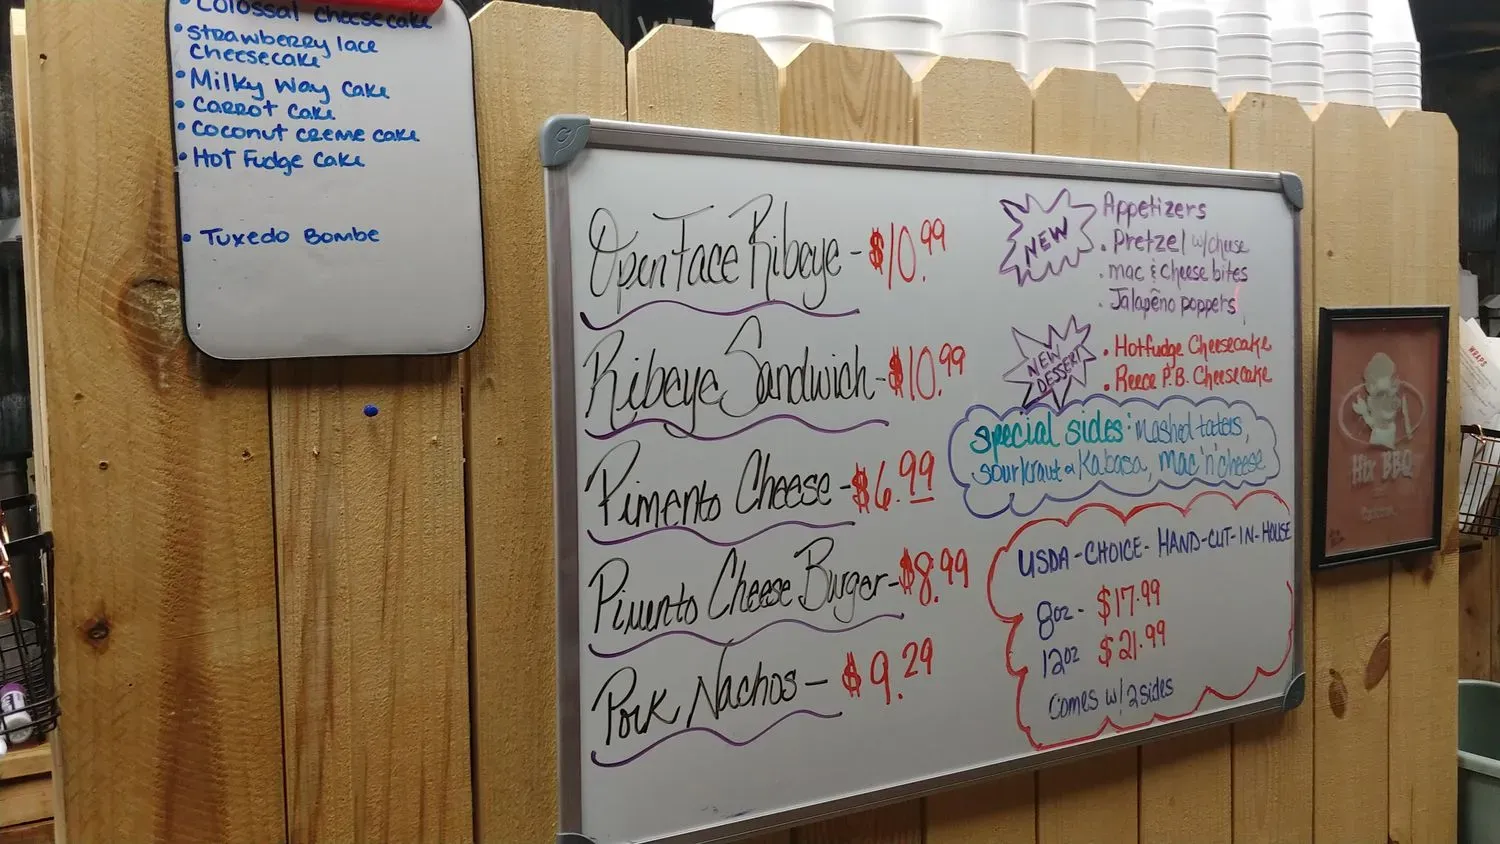 • Colossal Cheesecake
• strawberry lace
Cheesecake
• Milky Way cake
• Carrot cake
• Coconut creme cake
• Hot Fudge cake
• Tuxedo Bombe
Open Face Ribeye - $10.99
Ribeye Sandwich - $10.99
Pimento Cheese - $6.99
Pimento Cheese Burger - $8.99
Pork Nachos - $9.29
NEW
Appetizers
• Pretzel w/cheese
• mac & cheese bites
• Jalapeño poppers
NEW
DESSERT
• Hotfudge Cheesecake
• Reece P.B. Cheesecake
special sides: mashed taters,
sourkraut & Kabasa, mac 'n' cheese
USDA-CHOICE-HAND-CUT-IN-HOUSE
8oz - $17.99
12oz $21.99
Comes w/ 2 sides
Hix BBQ
WRAPS